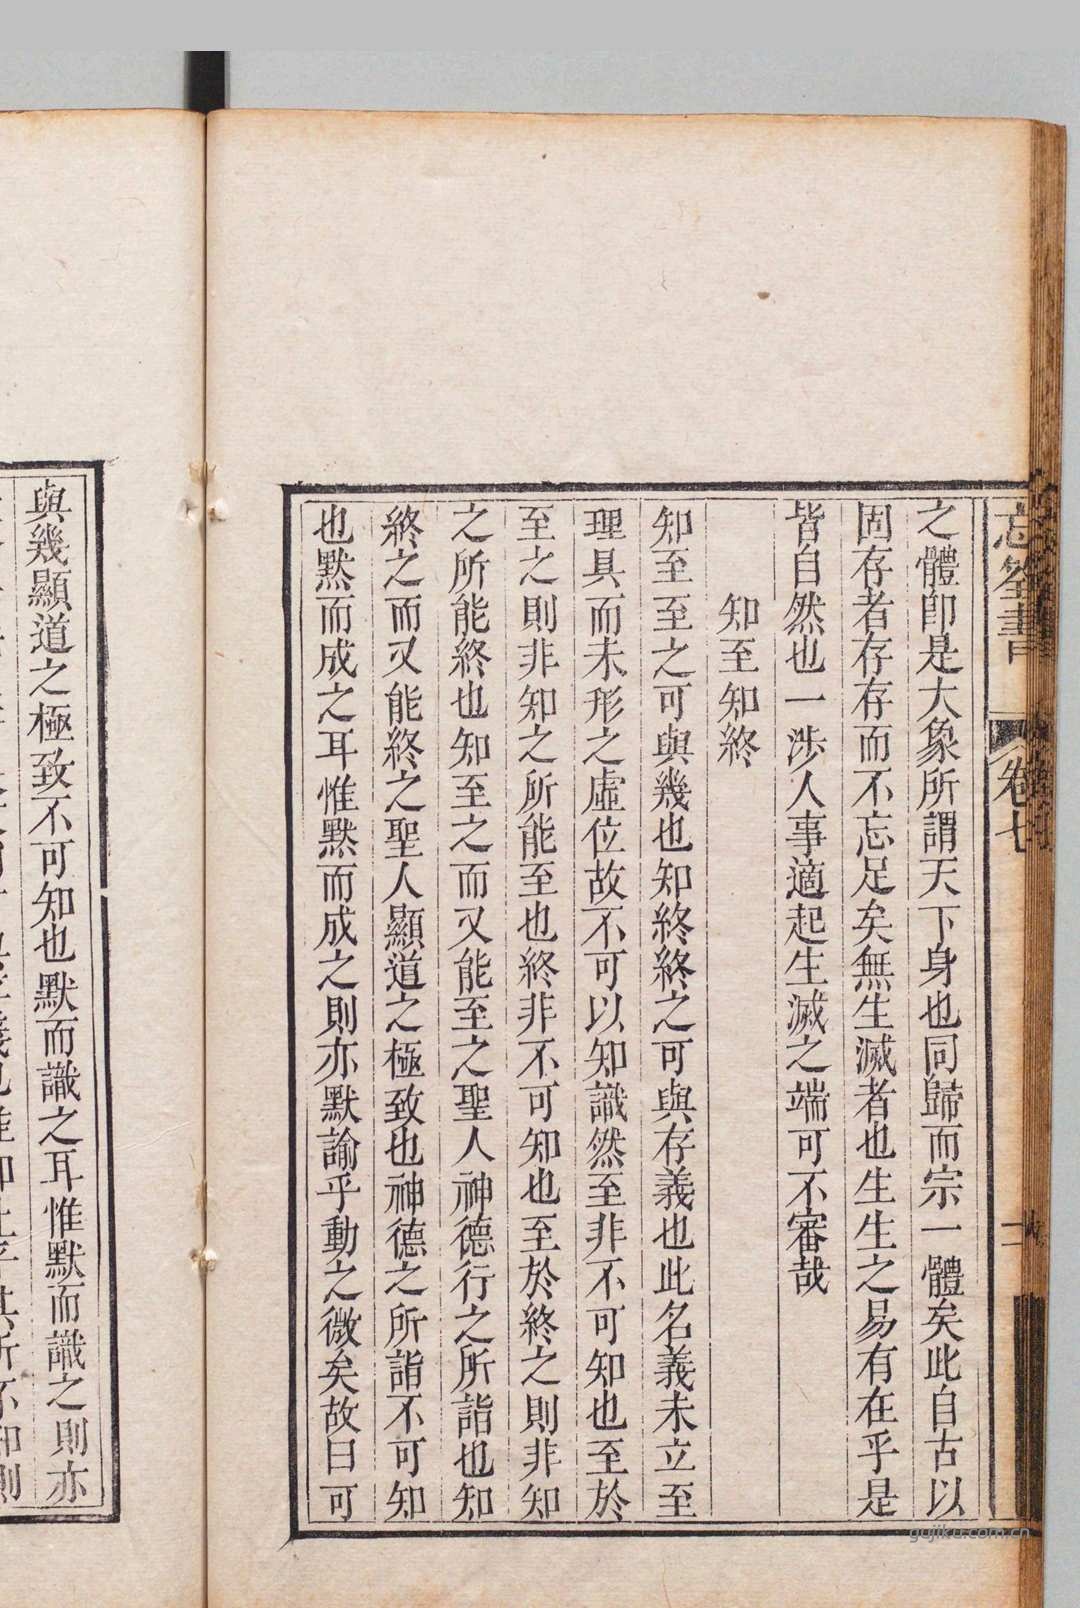 忘筌書
卷七
二
之體即是大象所謂天下身也同歸而宗一體矣此自古以
固存者存存而不忘足矣無生滅者也生生之易有在乎是
皆自然也一涉人事適起生滅之端可不審哉
知至知終
知至至之可與幾也知終終之可與存義也此名義未立至
理具而未形之虛位故不可以知識然至非不可知也至於
至之則非知之所能至也終非不可知也至於終之則非知
之所能終也知至之而又能至之聖人神德行之所詣也知
終之而又能終之聖人顯道之極致也神德之所詣不可知
也默而成之耳惟默而成之則亦默諭乎動之微矣故曰可
與幾顯道之極致不可知也默而識之耳惟默而識之則亦
gujiku.com.cn